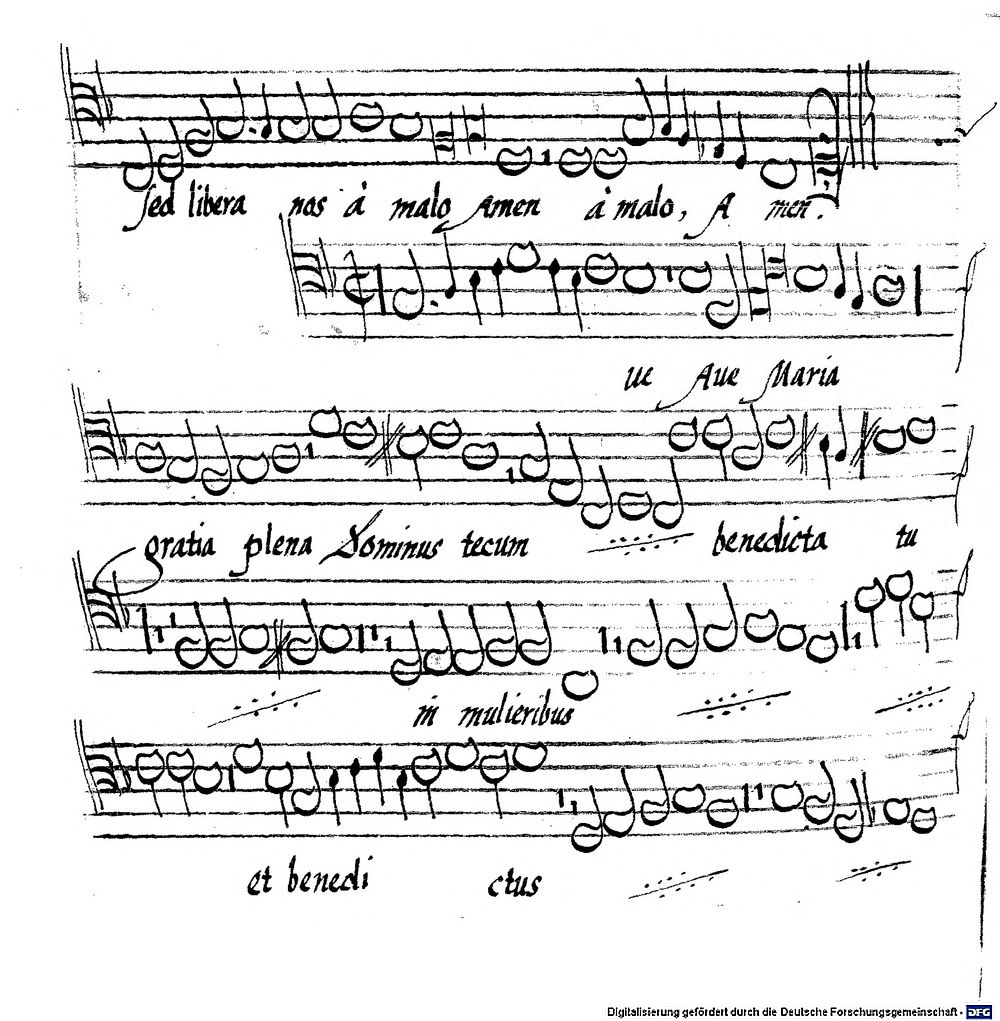 sed libera nos à malo Amen à malo, A men.
ue Aue Maria
gratia plena Dominus tecum benedicta tu
in mulieribus
et benedi ctus
Digitalisierung gefördert durch die Deutsche Forschungsgemeinschaft - DFG